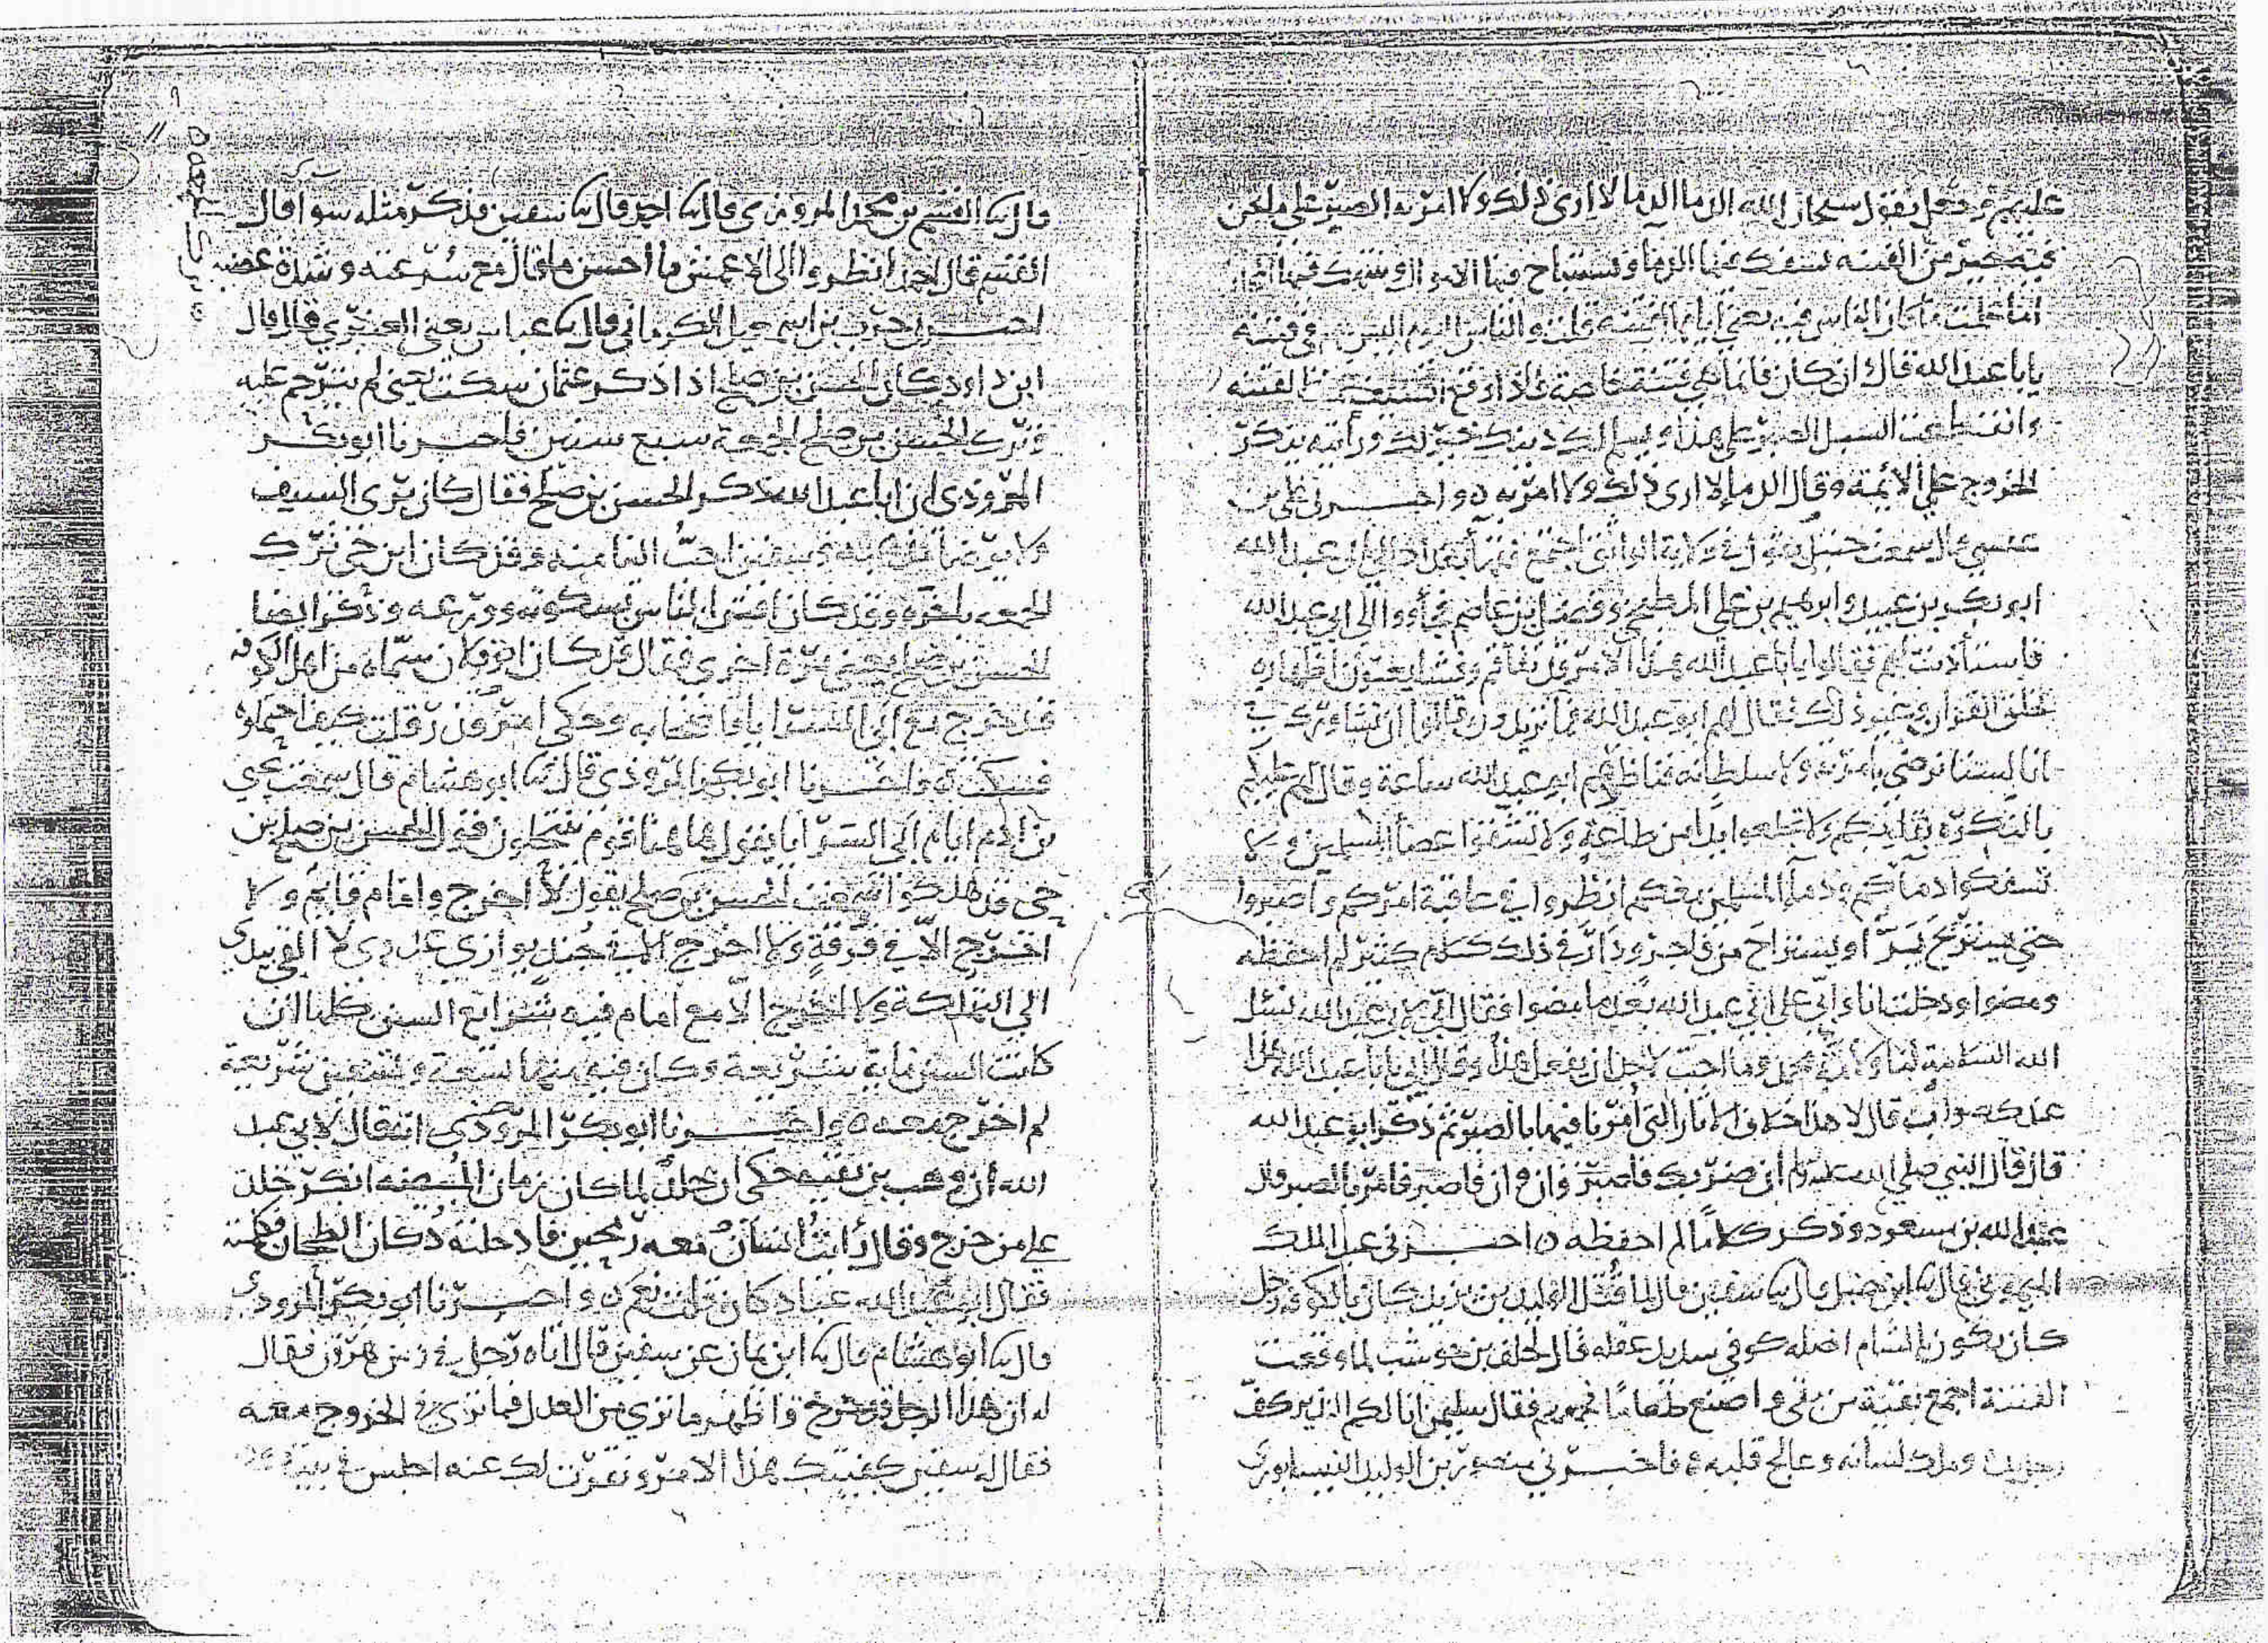 عليهم وجعل يقول سبحان الله الدما الدما لا ارى ذلك ولا امر به الصبر على ما نحن
فيه خير من الفتنه يسفك فيها الدما ويستباح فيها الاموال وينتهك فيها المحارم
اما علمت ما كان الناس فيه يعني ايام الفتنه قلت والناس اليوم اليس هم في فتنه
يابا عبد الله قال ان كان فانما هي فتنة خاصة فاذا وقع السيف عمت الفتنه
وانقطعت السبل الصبر على هذا ويسلم لك دينك خير لك ورأيته ينكر
الخروج على الأئمة وقال الدما لا ارى ذلك ولا امر به ه واخبرني علي بن
عيسى قال سمعت حنبل يقول في ولاية الواثق اجتمع فقها بغداد الى ابي عبد الله
ابو بكر بن عبيد وابرهيم بن علي المطبخي وفضل بن عاصم فجاؤوا الى ابي عبد الله
فاستأذنت لهم فقالوا يابا عبد الله هذا الامر قد تفاقم وفشا يعنون اظهاره
لخلق القران وغير ذلك فقال لهم ابو عبد الله فما تريدون قالوا ان نشاورك في
انا لسنا نرضى بامرته ولا سلطانه فناظرهم ابو عبد الله ساعة وقال لهم عليكم
بالنكره بقلوبكم ولا تخلعوا يدا من طاعة ولا تشقوا عصا المسلمين ولا
تسفكوا دماكم ودما المسلمين معكم انظروا في عاقبة امركم واصبروا
حتى يستريح بر او يستراح من فاجر ودار في ذلك كلام كثير لم احفظه
ومضوا ودخلت انا وابي على ابي عبد الله بعد ما مضوا فقال ابي لابي عبد الله نسئل
الله السلامة لنا ولامة محمد وما احب لاحد ان يفعل هذا وقال ابي يابا عبد الله هذا
عندك صواب قال لا هذا خلاف الاثار التي امرنا فيها بالصبر ثم ذكر ابو عبد الله
قال قال النبي صلى الله عليه وسلم ان ضربك فاصبر وان وان فاصبر فامر بالصبر قال
عبد الله بن مسعود وذكر كلاما لم احفظه ه اخبرني عبد الملك
الميموني قال ثنا ابن حنبل قال ثنا سفين قال لما قتل الوليد بن يزيد كان بالكوفه رجل
كان يكون بالشام اصله كوفي سديد عقله قال لخلف بن حوشب لما وقعت
الفتنة اجمع بقية من بقي واصنع طعاما فجمعهم فقال سليمن انا لكم النذير كف
رجل يده وملك لسانه وعالج قلبه ه فاخبرني منصور بن الوليد النيسابوري
قال ثنا القسم بن محمد المروذي قال ثنا احمد قال ثنا سفين فذكر مثله سوا قال
القسم قال احمد انظروا الى الاعمش ما احسن ما قال مع سرعته وشدة غضبه
اخبرني حرب بن اسمعيل الكرماني قال ثنا عباس يعني العنبري قال قال
ابن داود كان الحسن بن صلح اذا ذكر عثمان سكت يعني لم يترحم عليه
وترك الحسن بن صلح الجمعة سبع سنين فاخبرنا ابو بكر
المروذي ان ابا عبد الله ذكر الحسن بن صلح فقال كان يرى السيف
ولا يرضا مذهبه وسفين احب الينا منه وقد كان ابن حي ترك
الجمعه باخره وقد كان افتن الناس بسكوته وورعه وذكر ايضا
الحسن بن صلح يعني مرة اخرى فقال قد كان ابو فلان سماه من اهل الكوفه
قد خرج مع ابي السرايا
فسكت ه واخبرنا ابو بكر المروذي قال ثنا ابو هشام قال سمعت يحيى
بن ادم ايام ابي السرايا يقول هاهنا قوم ينتحلون قول الحسن بن صلح بن
حي قد هلكوا سمعت الحسن بن صلح يقول لا اخرج وامام قايم ولا
اخرج الا في فرقة ولا اخرج الا في جند يوازي عدوي لا القي بيدي
الى التهلكة ولا اخرج الا مع امام فيه شرائع السنن كلها ان
كانت السنن ماية شريعة وكان فيه منها تسعة وتسعين شريعة
لم اخرج معه ه واخبرنا ابو بكر المروذي انه قال لابي عبد
الله ان وهب بن بقيه حكى ان خلدا لما كان زمان المبيضه انكر خلد
على من خرج وقال رايت انسان معه رمحين فادخلته دكان الطحان فكلمته
فقال ابو عبد الله عباد كان قلت نعم ه واخبرنا ابو بكر المروذي
قال ثنا ابو هشام قال ثنا ابن يمان عن سفين قال اتاه رجل في زمن هرون فقال
له ان هذا الرجل قد خرج واظهر ما ترى من العدل فما ترى في الخروج معه
فقال له سفين كفيتك هذا الامر ونقرت لك عنه اجلس في بيتك